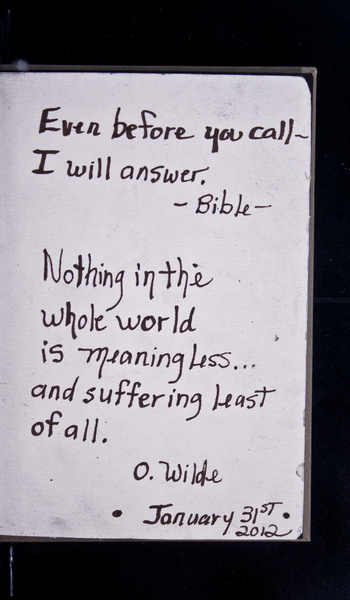 Even before you call~
I will answer.
- Bible -
Nothing in the
whole world
is meaningless...
and suffering least
of all.
O. Wilde
• January 31ST •
2012